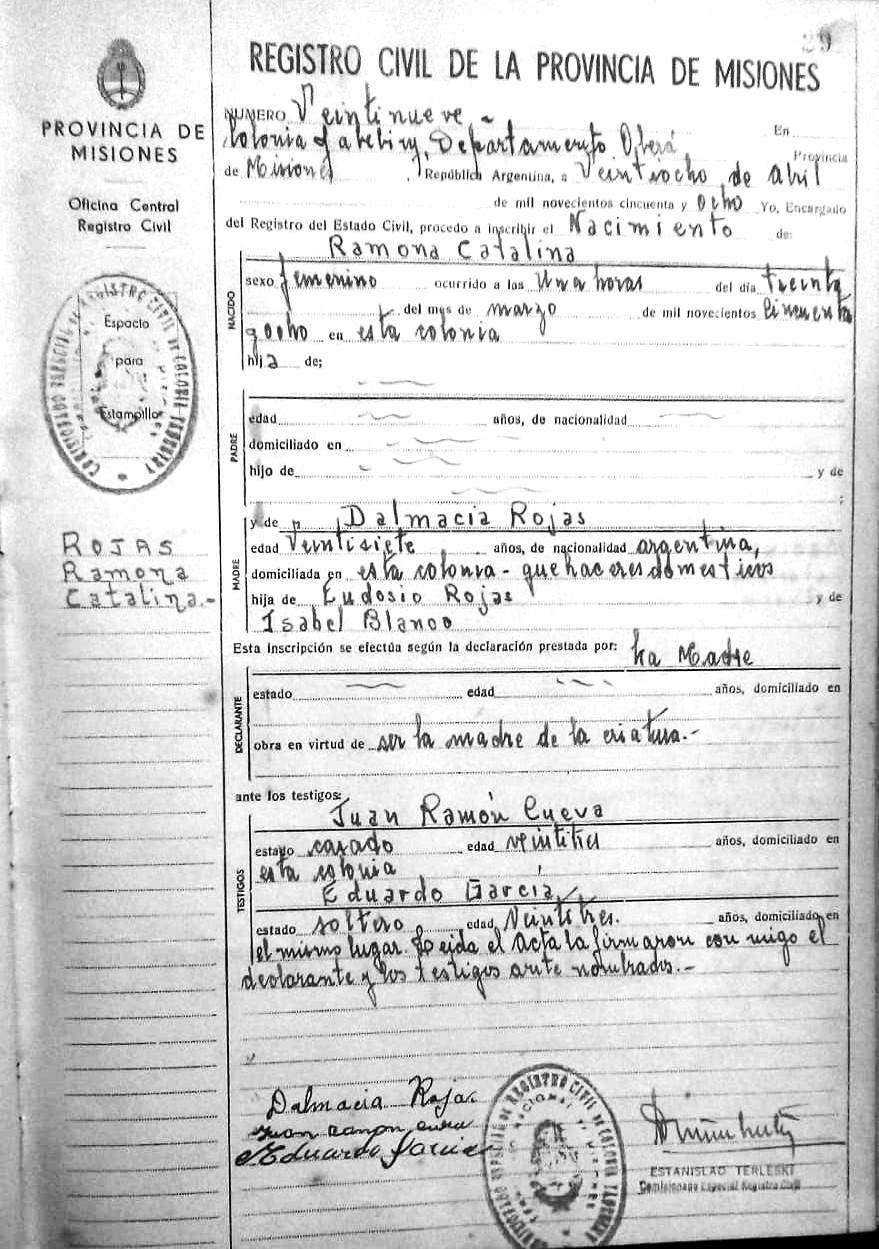 29
REGISTRO CIVIL DE LA PROVINCIA DE MISIONES
PROVINCIA DE
MISIONES
Oficina Central
Registro Civil
Espacio
para
Estampilla
ROJAS
Ramona
Catalina.-
NUMERO Veintinueve - En
Colonia Departamento Oberá Provincia
de Misiones, República Argentina, a Veintiocho de abril
de mil novecientos cincuenta y ocho Yo, Encargado
del Registro del Estado Civil, procedo a inscribir el Nacimiento de:
Ramona Catalina
NACIDO
sexo femenino ocurrido a las Una horas del día treinta
del mes de marzo de mil novecientos Cincuenta
y ocho en esta colonia
hija de;
PADRE
edad años, de nacionalidad
domiciliado en
hijo de y de
;
MADRE
y de Dalmacia Rojas
edad Veintisiete años, de nacionalidad argentina,
domiciliada en esta colonia - quehaceres domesticos
hija de Eudosio Rojas y de
Isabel Blanco
Esta inscripción se efectúa según la declaración prestada por: La Madre
DECLARANTE
estado edad años, domiciliado en
obra en virtud de ser la madre de la criatura.-
ante los testigos:
Juan Ramón Cueva
TESTIGOS
estado casado edad veintitres años, domiciliado en
esta colonia
Eduardo García
estado soltero edad Veintitres. años, domiciliado en
el mismo lugar. Leida el acta la firmaron con migo el
declarante y los testigos ante nombrados.-
Dalmacia Rojas
Juan Ramon Cueva
Eduardo Garcia
ESTANISLAO TERLESKI
Comisionado Especial Registro Civil